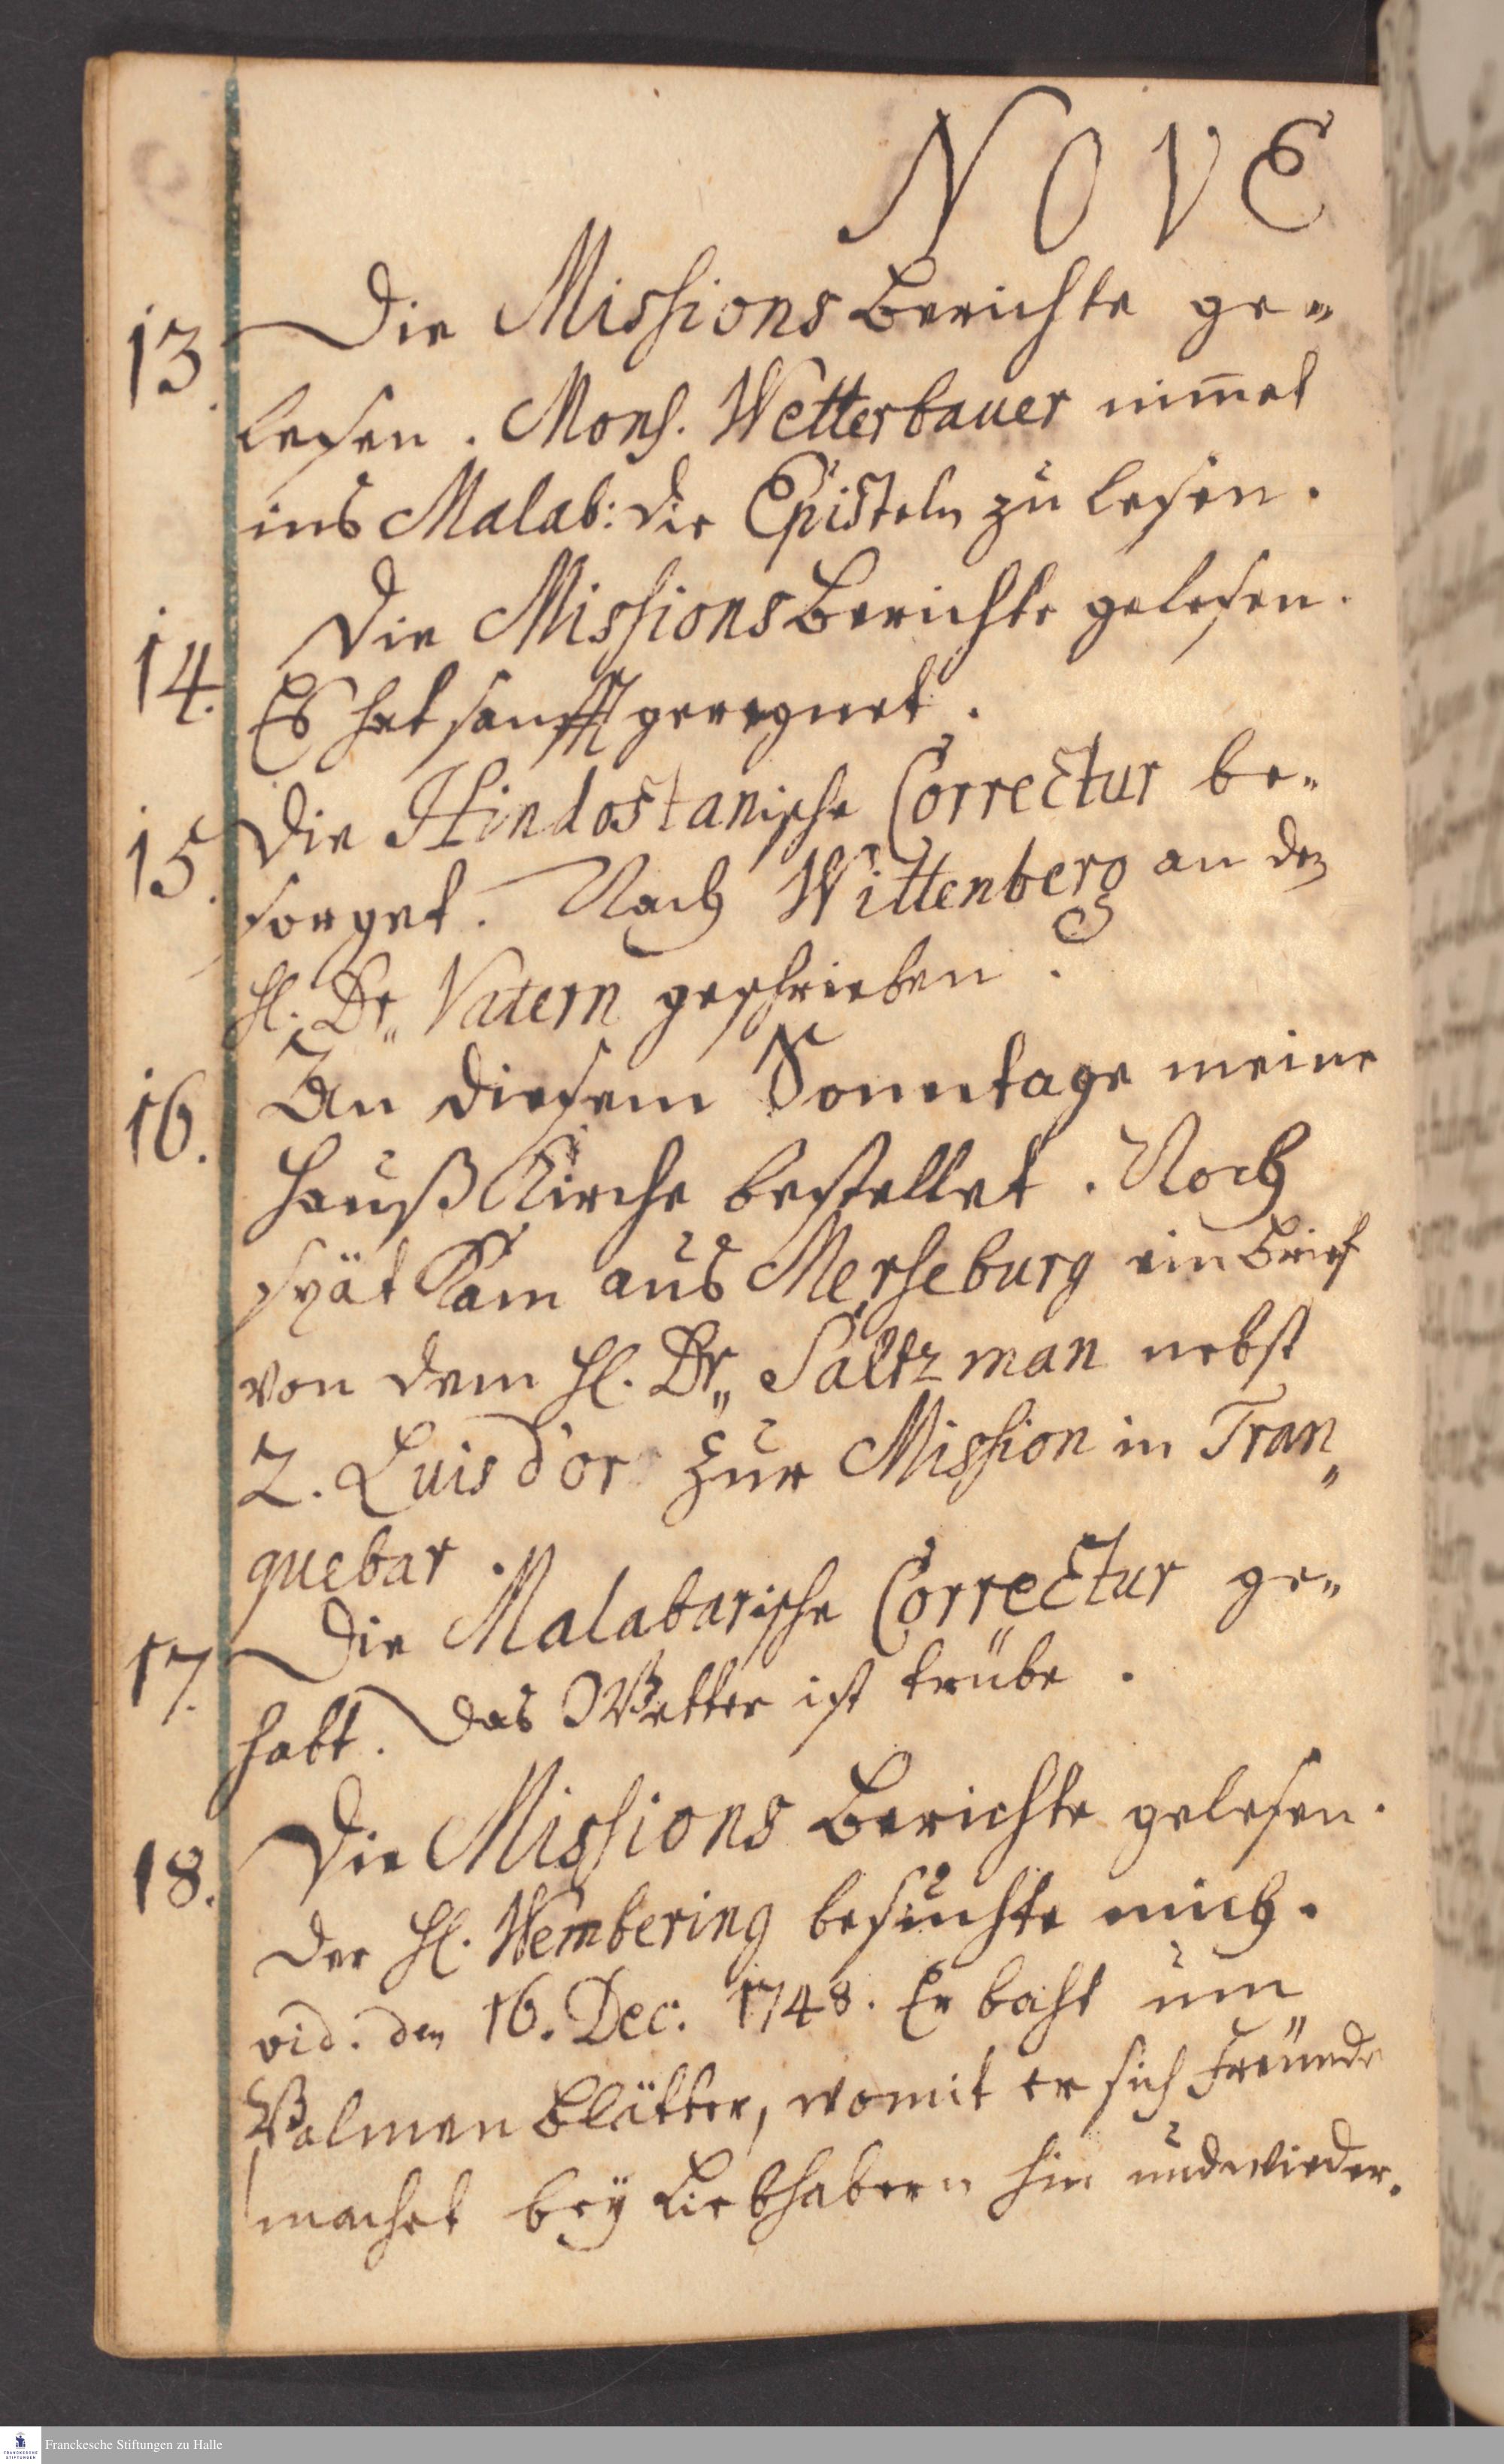 NOVE
13. Die Missions Berichte ge-
lesen. Mons. Wetterbauer nim̄et
ins Malab: die Episteln zu lesen.
14. Die Missions Berichte gelesen.
Es hat sanfft geregnet.
15. Die Hindostanische Correctur be-
sorget. Nach Wittenberg an den
H. Dr. Vatern geschrieben.
16. An diesem Sonntage meine
Hauß Kirche bestellet. Noch
spät kam aus Merseburg ein Brief
von dem H. Dr. Saltzman nebst
2. Luis d'or zur Mission in Tran„
quebar.
17. Die Malabarische Correctur ge-
habt. Das Wetter ist trübe.
18. Die Missions Berichte gelesen.
Der H. Wembering besuchte mich.
vid. den 16. Dec. 1748. Er baht um
Palmen Blätter, womit er sich Freunde
machet beÿ Liebhabern hin und wieder.
Franckesche Stiftungen zu Halle